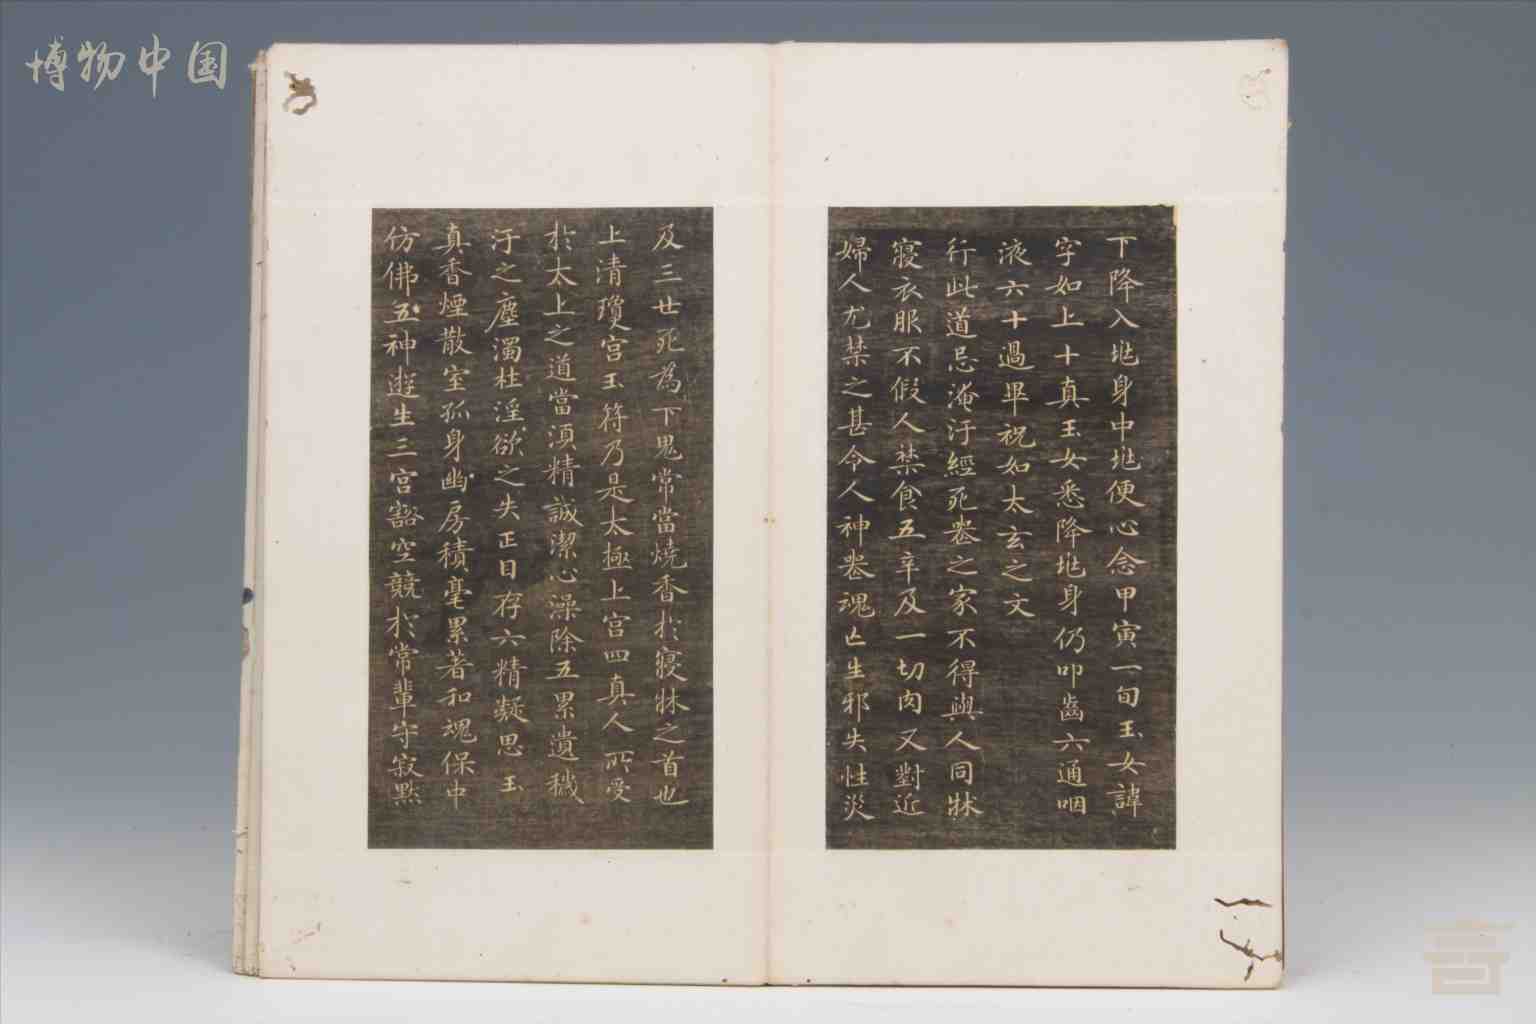 博物中国
下降入垗身中垗便心念甲寅一旬玉女諱
字如上十真玉女悉降垗身仍叩齒六通咽
液六十過畢祝如太玄之文
行此道忌淹汙經死喪之家不得與人同牀
寢衣服不假人禁食五辛及一切肉又對近
婦人尤禁之甚令人神喪魂亡生邪失性災
及三世死為下鬼常當燒香於寢牀之首也
上清瓊宮玉符乃是太極上宮四真人所受
於太上之道當須精誠潔心澡除五累遺穢
汙之塵濁杜淫欲之失正目存六精凝思玉
真香煙散室孤身幽房積毫累著和魂保中
仿佛五神遊生三宮豁空競於常輩守寂默